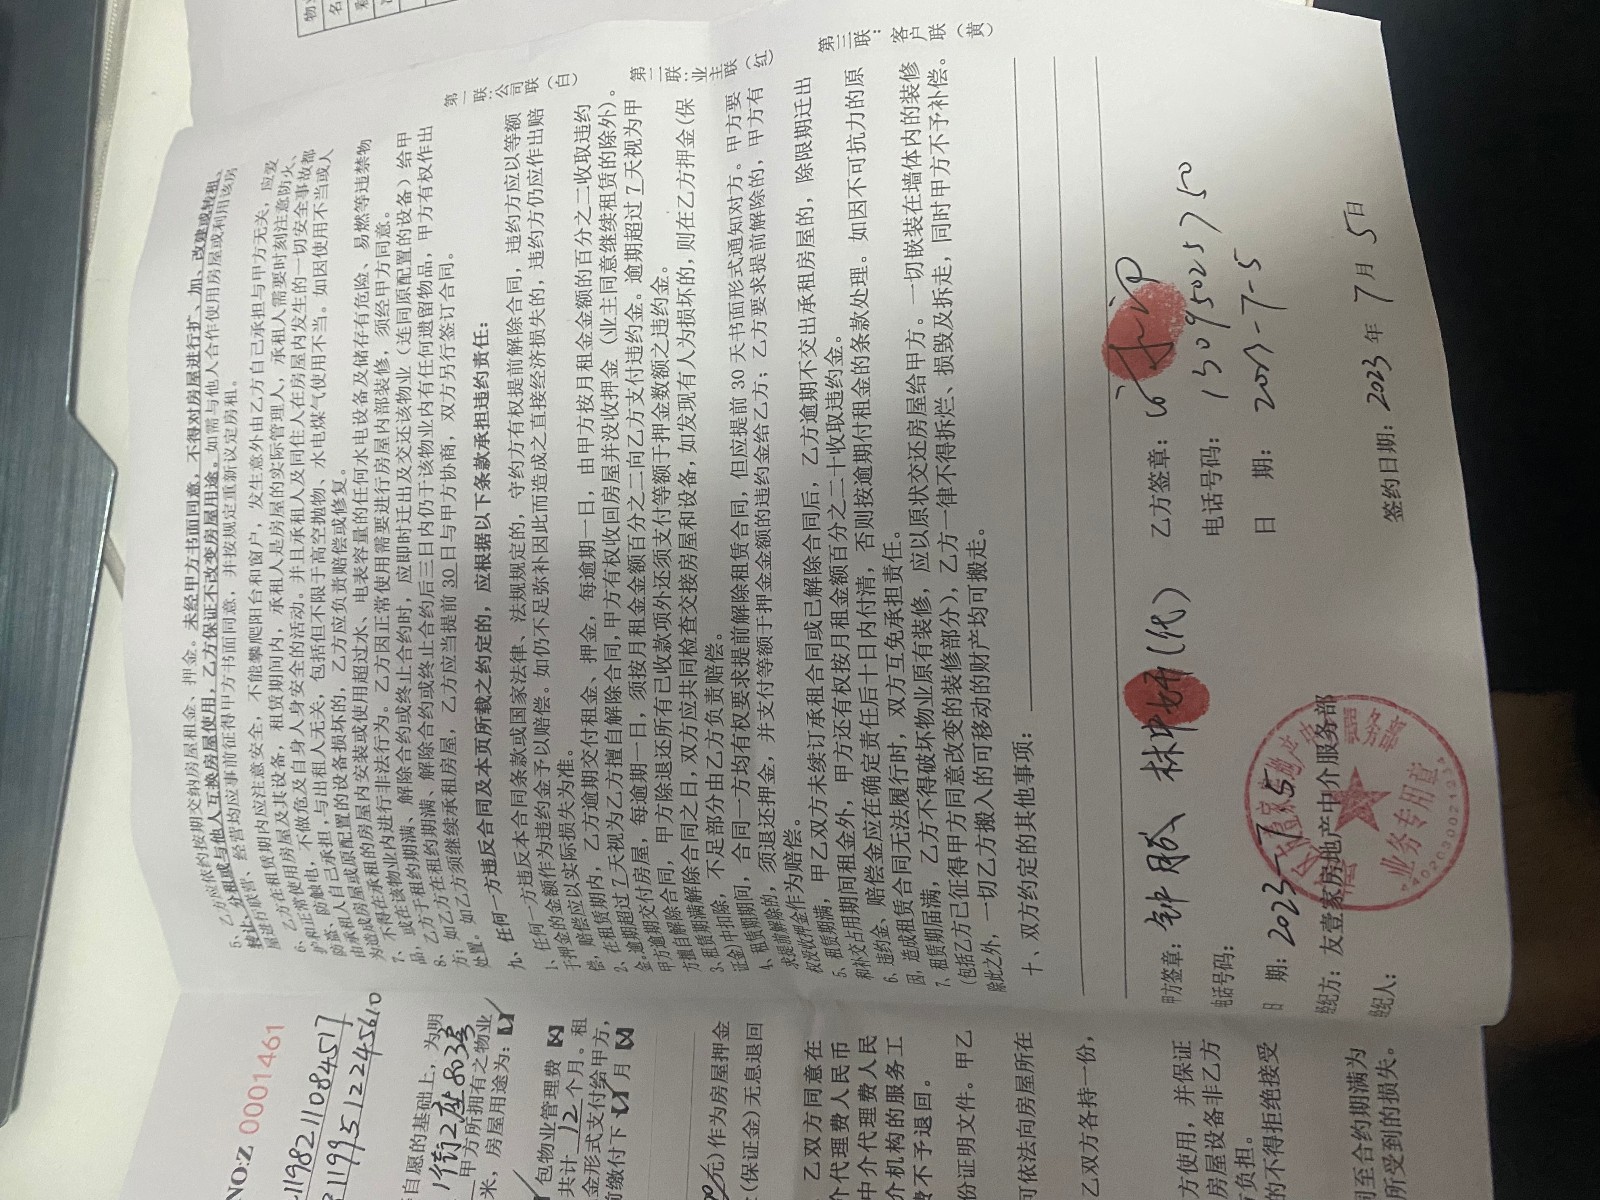 5、乙方应依约按期交纳房屋租金、押金。未经甲方书面同意，不得对房屋进行扩、加、改建或转租、
转让、分租或与他人互换房屋使用，乙方保证不改变房屋用途。如需与他人合作使用房屋或利用该房
屋进行联营、经营均应事前征得甲方书面同意，并按规定重新议定房租。
6、乙方在租赁期内应注意安全，不能攀爬阳台和窗户，发生意外由乙方自己承担与甲方无关，应爱
护和正常使用房屋及其设备，租赁期间内，承租人是房屋的实际管理人，承租人需要时刻注意防火、
防盗、防触电，不做危及自身人身安全的活动。并且承租人及同住人在房屋内发生的一切安全事故都
由承租人自己承担，与出租人无关，包括但不限于高空抛物、水电煤气使用不当。如因使用不当或人
为造成房屋或原配置的设备损坏的，乙方应负责赔偿或修复。
7、不得在承租的房屋内安装或使用超过水、电表容量的任何水电设备及储存有危险、易燃等违禁物
品，或在该物业内进行非法行为。乙方因正常使用需要进行房屋内部装修，须经甲方同意。
8、乙方于租约期满、解除合约或终止合约时，应即时迁出及交还该物业（连同原配置的设备）给甲
方；如乙方在租约期满、解除合约或终止合约后三日内仍于该物业内有任何遗留物品，甲方有权作出
处置。如乙方须继续承租房屋，乙方应当提前30日与甲方协商，双方另行签订合同。
九、任何一方违反合同及本页所载之约定的，应根据以下条款承担违约责任：
1、任何一方违反本合同条款或国家法律、法规规定的，守约方有权提前解除合同，违约方应以等额
于押金的金额作为违约金予以赔偿。如仍不足弥补因此而造成之直接经济损失的，违约方仍应作出赔
偿，赔偿应以实际损失为准。
2、在租赁期内，乙方逾期交付租金、押金，每逾期一日，由甲方按月租金金额的百分之二收取违约
金。逾期超过7天视为乙方擅自解除合同，甲方有权收回房屋并没收押金（业主同意继续租赁的除外）。
甲方逾期交付房屋，每逾期一日，须按月租金金额百分之二向乙方支付违约金。逾期超过7天视为甲
方擅自解除合同，甲方除退还所有已收款项外还须支付等额于押金数额之违约金。
3、租赁期满解除合同之日，双方应共同检查交接房屋和设备，如发现有人为损坏的，则在乙方押金（保
证金）中扣除，不足部分由乙方负责赔偿。
4、租赁期期间，合同一方均有权要求提前解除租赁合同，但应提前30天书面形式通知对方。甲方要
求提前解除的，须退还押金，并支付等额于押金金额的违约金给乙方；乙方要求提前解除的，甲方有
权没收押金作为赔偿。
5、租赁期满，甲乙双方未续订承租合同或已解除合同后，乙方逾期不交出承租房屋的，除限期迁出
和补交占用期间租金外，甲方还有权按月租金额百分之二十收取违约金。
6、违约金、赔偿金应在确定责任后十日内付清，否则按逾期付租金的条款处理。如因不可抗力的原
因，造成租赁合同无法履行时，双方互免承担责任。
7、租赁期届满，乙方不得破坏物业原有装修，应以原状交还房屋给甲方。一切嵌装在墙体内的装修
（包括乙方已征得甲方同意改变的装修部分），乙方一律不得拆烂、损毁及拆走，同时甲方不予补偿。
除此之外，一切乙方搬入的可移动的财产均可搬走。
十、双方约定的其他事项：
甲方签章：钟 林中妍(代)
电话号码：
日 期：2023-7-5
经纪方：友壹家房地产中介服务部
经纪人：
乙方签章：
电话号码：13095025750
日 期：2023-7-5
签约日期：2023 年 7 月 5 日
第一联：公司联（白）
第二联：业主联（红）
第三联：客户联（黄）
业务专用章
NO:Z 0001461
自愿的基础上，为明
1街2座803号
甲方所拥有之物业
米，房屋用途为：☑
包物业管理费
共计 12 个月。租
金形式支付给甲方，
前缴付下 月
元)作为房屋押金
(保证金)无息退回
乙双方同意在
个代理费人民币
中介代理费人民
介机构的服务工
费不予退回。
份证明文件。甲乙
可依法向房屋所在
乙双方各持一份，
方使用，并保证
房屋设备非乙方
负担。
的不得拒绝接受
至合约期满为
所受到的损失。